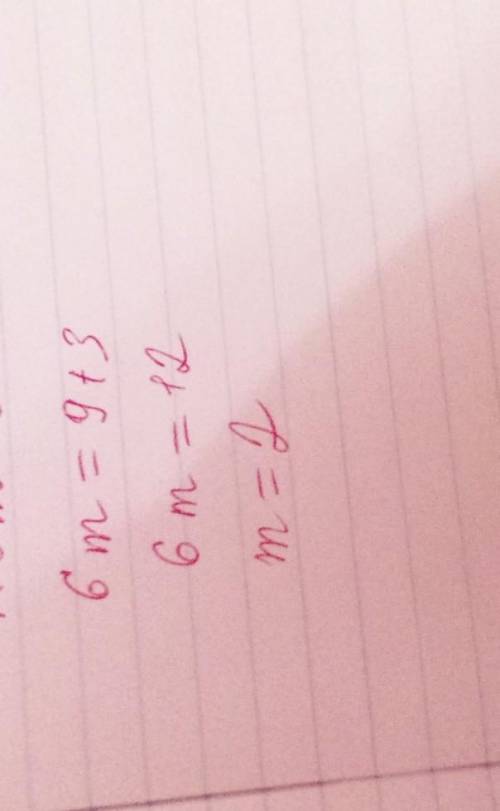 6m = 9 + 3
6m = 12
m = 2